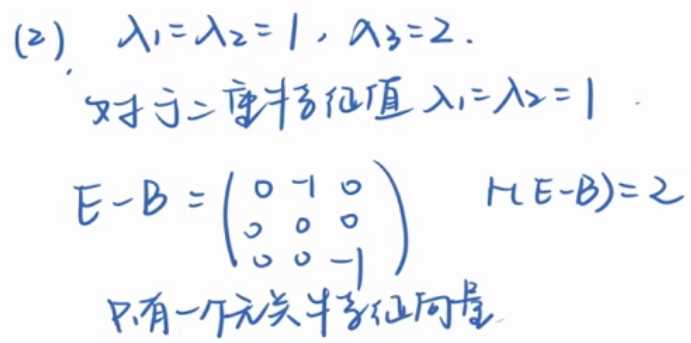 (2), λ₁=λ₂=1, λ₃=2.
对于二重特征值 λ₁=λ₂=1.
E-B = ( 0 -1 0   r(E-B)=2
0 0 0
0 0 -1 )
只有一个无关特征向量